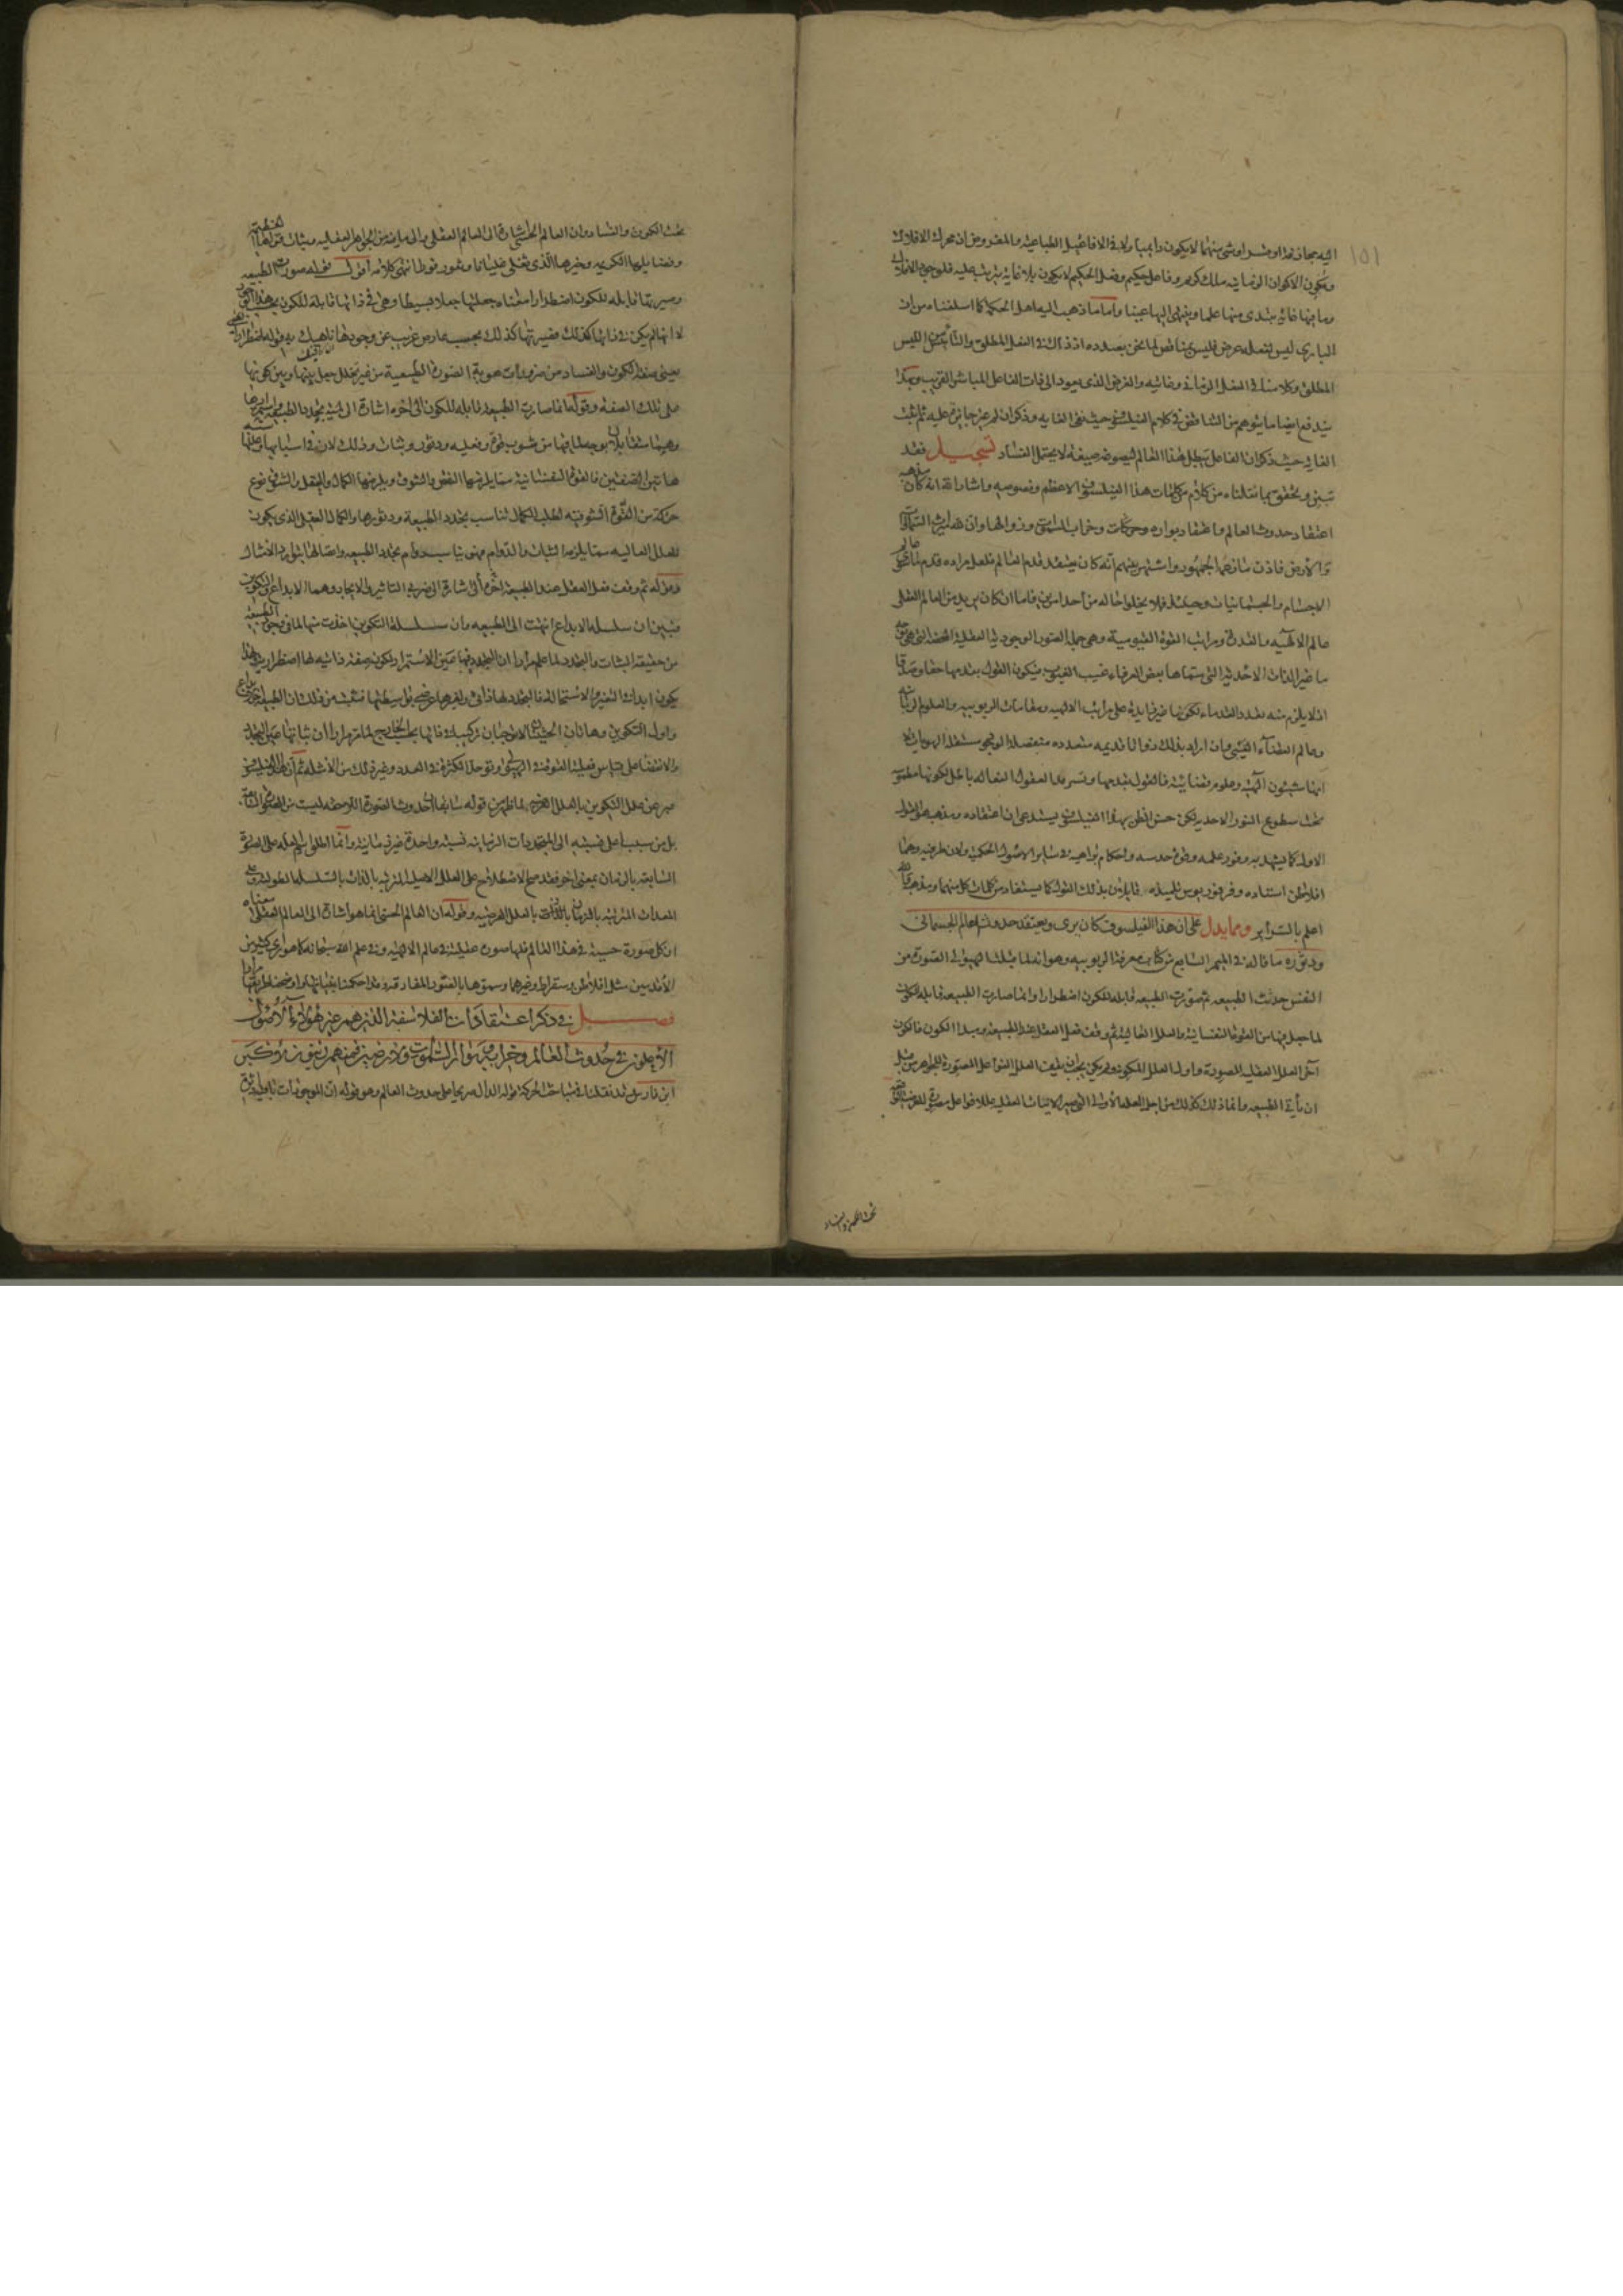 ١٥١
اليه مجازفة او فسد او شئ منهما لا يكون دايميا ولا في الافاعيل الطباعية والمفروض ان محرك الافلاك
ومكون الاكوان الزمانيه ملك كريم وفاعل حكيم وفعل الحكيم لا يكون بلا غاية يترتب عليه فلوجود الافلاك
وما فيها غاية يبتدى منها علما وينتهى اليها عينا واما ما ذهب اليه اهل الحكمة كما اسلفناه من ان
البارى ليس لفعله عرض فليس يناقض لما نحن بصدده اذ ذاك في الفعل المطلق والتأييس الليس
المطلق وكلامنا في الفعل الزمانى وغائيته والغرض الذى يعود الى ذات الفاعل المباشر القريب وبهذا
يندفع ايضا ما يتوهم من التناقض في كلام الفيلسوف حيث نفى الغايه وذكر ان لم غير جايز عليه ثم اثبت
الغاية حيث ذكر ان الفاعل يبطل هذا العالم ليصوغه صيغة لا يحتمل الفساد تسجيل فقد
تبين وتحقق بما نقلناه من كلام من كلمات هذا الفيلسوف الاعظم ونصوصه واشاراته انه كان مذهبه
اعتقاد حدوث العالم واعتقاد بواره وحركات وخراب السموات وزوالها وان لله ميراث السماوات
والارض فاذن ما نقله الجمهور واشتهر بينهم انه كان يعتقد قدم العالم فلعل مراده قدم ما سوى عالم
الاجسام والجسمانيات وحينئذ فلا يخلوا حاله من احد امرين فاما ان كان يريد من العالم العقلى
عالم الالهيه والقدرة ومراتب القوة القيومية وهى جملة الصور الوجودية العقلية المحضة التى هى
ما غير الذات الاحدية التى سماها بعض العرفاء غيب الغيوب فيكون القول بقدمها حقا وصدقا
اذ لا يلزم منه تعدد القدماء لكونها غير زايدة على مراتب الالهيه ومقامات الربوبيه والعلوم الربانيه
وعالم القضاء الغيبى وان اراد بذلك ذواتا قديمه متعدده منفصلة الوجود مستقلة الهويات لا
انها شئون الهية وعلوم قضائية فالقول بقدمها وتسرمد العقول الفعاله باطل لكونها مطموسة
تحت سطوع النور الاحدى لكن حسن الظن بهذا الفيلسوف يستدعى ان اعتقاده ومذهبه هو القول
الاول كما يشهد به وفور علمه وقوة حدسه واحكام براهينه في ساير الاصول الحكمية ولان طرفيه وهما
افلاطن استاده وفرفوريوس تلميذه قايلان بذلك القول كما يستفاد من كلمات كل منهما ومذهبه والله
اعلم بالسراير ومما يدل على ان هذا الفيلسوف كان يرى ويعتقد حدوث العالم الجسمانى
ودثوره ما قاله في الميمر السابع من كتاب معرفة الربوبيه وهو انه لما قبلت الهيولى الصورة من
النفس حدثت الطبيعه ثم صورت الطبيعه قابلة للكون اضطرارا وانما صارت الطبيعه قابله للكون
لما جعل فيها من القوة النفسانية والعلل العالية ثم وقف فعل العقل عند الطبيعه ومبدا الكون فالكون
آخر العلل العقليه المصورة واول العلل المكونة ولم يكن يجب ان يقف العلل الفواعل المصورة للجواهر من قبل
ان يأتى الطبيعه وانما ذلك كذلك من اجل العلة الاولى التى صيرت الانيات العقليه عللا فواعل مصورة للصور العرضية الواقعة
تحت الكون والفساد
تحت الكون والفساد وان العالم الحسى اشارة الى العالم العقلى والى ما فيه من الجواهر العقليه وبيان قواها العظيمة
وفضايلها الكريمه وخيرها الذى يغلى غليانا ويفور فورا انتهى كلامه اقول قوله صورت الطبيعه
وصيرتها قابله للكون اضطرارا معناه جعلها جعلا بسيطا وهى في ذاتها قابلة للكون بحسب هذا الجعل
لا انها لم يكن في ذاتها كذلك فصيرتها كذلك بحسب عارض غريب عن وجودها ناهيك به قوله اضطرارا
يعنى صفة الكون والفساد من ضروريات هوية الصورة الطبيعية من غير تخلل جعل بينها وبين كونها
على تلك الصفة وقوله انما صارت الطبيعه قابله للكون الى اخره اشارة الى لمية تجدد الطبيعه واستمرارها
وهما متقابلان بوجه لما فيها من شوب قوة وفعليه ودثور وثبات وذلك لان في اسبابها وعللها
هاتين الصفتين فالقوة النفسانية مما يلزمها النقص والشوق ويلزمها الكمال والعقل والشوق نوع
حركة من القوة الشوقيه لطلب الكمال تناسب تجدد الطبيعة ودثورها والكمال العقلى الذى يكون
للعلل العاليه مما يلزمه الثبات والدوام فهو يناسب دوام تجدد الطبيعه واتصالها بتوارد الامثال
وقوله ثم وقف فعل العقل عند الطبيعة اخره الى اشارة الى ضربى التاثير والايجاد وهما الابداع والتكوين
فتبين ان سلسلة الابداع انتهت الى الطبيعه وان سلسلة التكوين اخذت منها لما في وجود الطبيعه
من حقيقة الثبات والتجدد لما علم مرارا ان التجدد فيها عين الاستمرار لكونه صفة ذاتيه لها اضطراريه وهذا
يكون ابداء التغير والاستحالة فالتجدد لها ذاتى ولغيرها عرضى بواسطتها فثبت من ذلك ان الطبيعة آخر الابداع
واول التكوين وهاتان الحيثيتان لا توجبان تركيبا في ذاتها بحسب الخارج لما مر مرارا ان ثباتها عين التجدد
والانقضاء على قياس فعلية القوة في الهيولى وتوحد الكثرة في العدد وغير ذلك من الامثله ثم ان هذا الفيلسوف
عبر عن علل التكوين بالعلل العرضيه لما ظهر من قوله سابقا ان حدوث الصورة اللاحقه ليست من الصورة السابقة
بل من سبب اعلى نسبته الى المتجددات الزمانيه نسبة واحدة غير زمانية وانما اطلق اسم العلة على الصورة
السابقه بالزمان بمعنى اخر فقد صح الاصطلاح على العلل الاصيلة المترتبه بالذات بالسلسلة الطولية وعلى
المعدات المترتبه بالزمان لا بالذات بالعلل العرضيه وقوله ان العالم الحسى انما هو اشارة الى العالم العقلى معناه
ان كل صورة حسية في هذا العالم فلها صورة عقلية في عالم الالهيه وفي علم الله سبحانه كما هو راى كثير من
الاقدمين مثل افلاطن وسقراط وغيرهما وسموها بالصور المفارقه وقد احكمنا بنيانها واوضحنا طريقها مرارا
فصل في ذكر اعتقادات الفلاسفة الذين هم غير هؤلاء الاصول
الاعلون في حدوث العالم وخرابه وزوال السموات والارضين فمنهم زينون الاكبر
ابن فارس قد نقلنا في مباحث الحركة قوله الدال صريحا على حدوث العالم وهو قوله ان الموجودات باقية داثرة